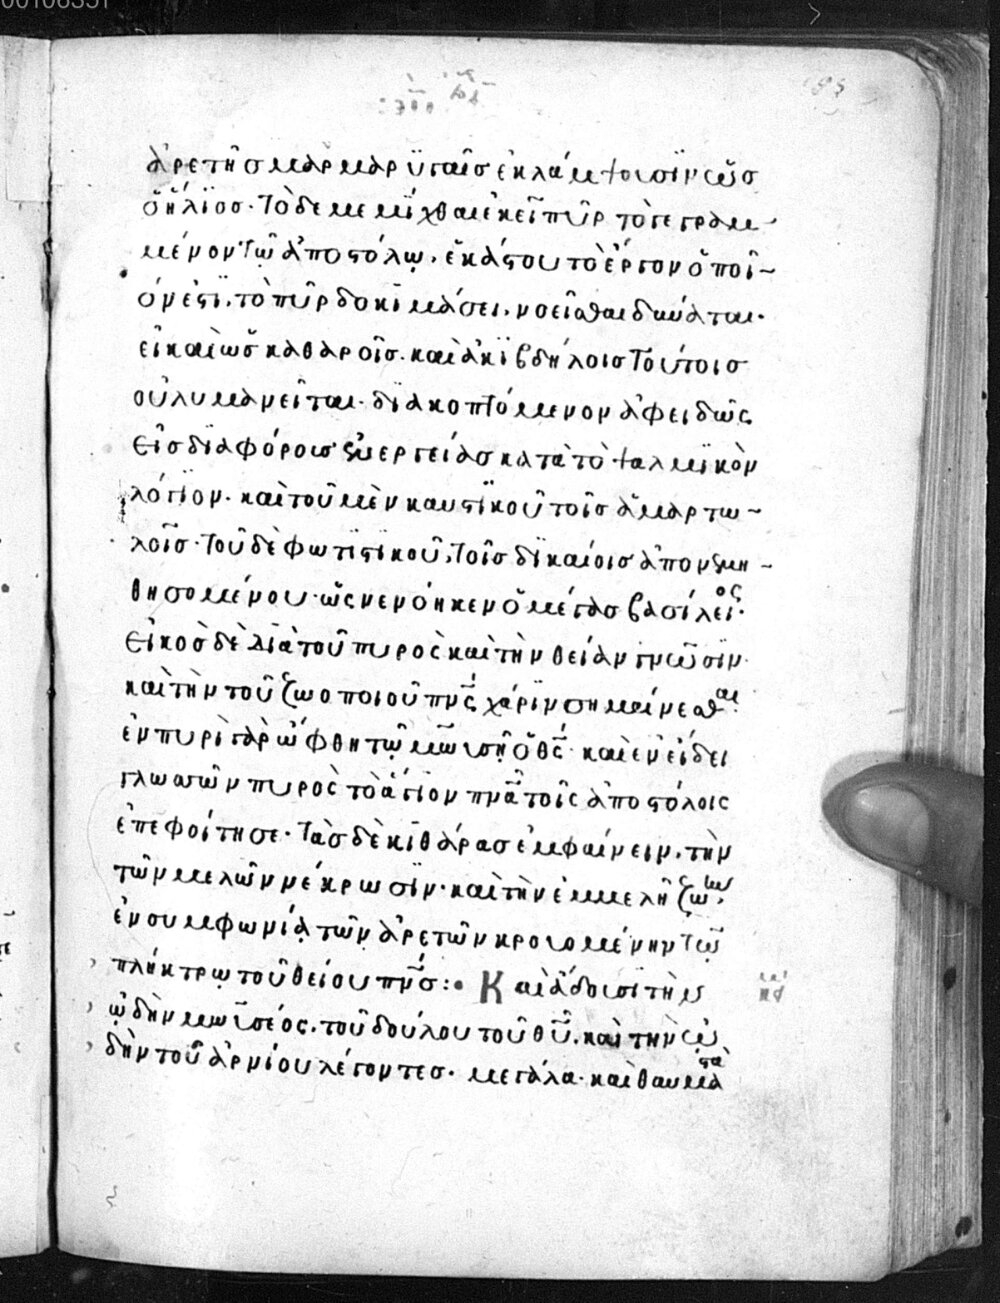 ἀρετῆσ μαρμαρυγαῖσ ἐκλάμψουσιν ὡσ
ὁ ἥλιοσ· τὸ δε μεμίχθαι ἐκεῖ πῦρ τὸ γεγραμ
μένον τῷ ἀποστόλῳ, ἑκάστου τὸ ἔργον ὁποῖ
όν ἐστι, τὸ πῦρ δοκιμάσει, νοεῖσθαι δύναται·
εἰ καὶ ὡσ καθαροῖσ· καὶ ἀκιβδήλοισ τούτοισ
οὐ λυμανεῖται· διακοπτόμενον ἀφειδῶς
εἰσ διαφόρουσ ἐνεργείασ κατὰ τὸ ψαλμικὸν
λόγιον· καὶ τοῦ μὲν καυστικοῦ τοῖσ ἁμαρτω
λοῖσ· τοῦ δὲ φωτιστικοῦ, τοῖσ δικαίοισ ἀπονεμη
θησομένου· ὡς νενόηκεν ὁ μέγασ βασίλειος·
εἰκοσ δὲ διὰ τοῦ πυρὸς καὶ τὴν θείαν γνῶσιν·
καὶ τὴν τοῦ ζωοποιοῦ πνς χάριν σημαίνεσθαι·
ἐν πυρὶ γὰρ ὤφθη τῷ μωυσῇ ὁ θς· καὶ ἐν εἴδει
γλωσσῶν πυρὸς τὸ ἅγιον πνα τοῖς ἀποστόλοις
ἐπεφοίτησε· τὰσ δὲ κιθάρασ ἐμφαίνειν, τὴν
τῶν μελῶν νέκρωσιν· καὶ τὴν ἐμμελῆ ζωὴν,
ἐν συμφωνίᾳ τῶν ἀρετῶν κρουομένην τῷ
πλήκτρῳ τοῦ θείου πνσ :• Καὶ ᾄδουσι τὴν
ᾠδὴν μωυσέος, τοῦ δούλου τοῦ θῦ, καὶ τὴν ᾠ
δὴν τοῦ ἀρνίου λέγοντεσ· μεγάλα· καὶ θαυμαστὰ